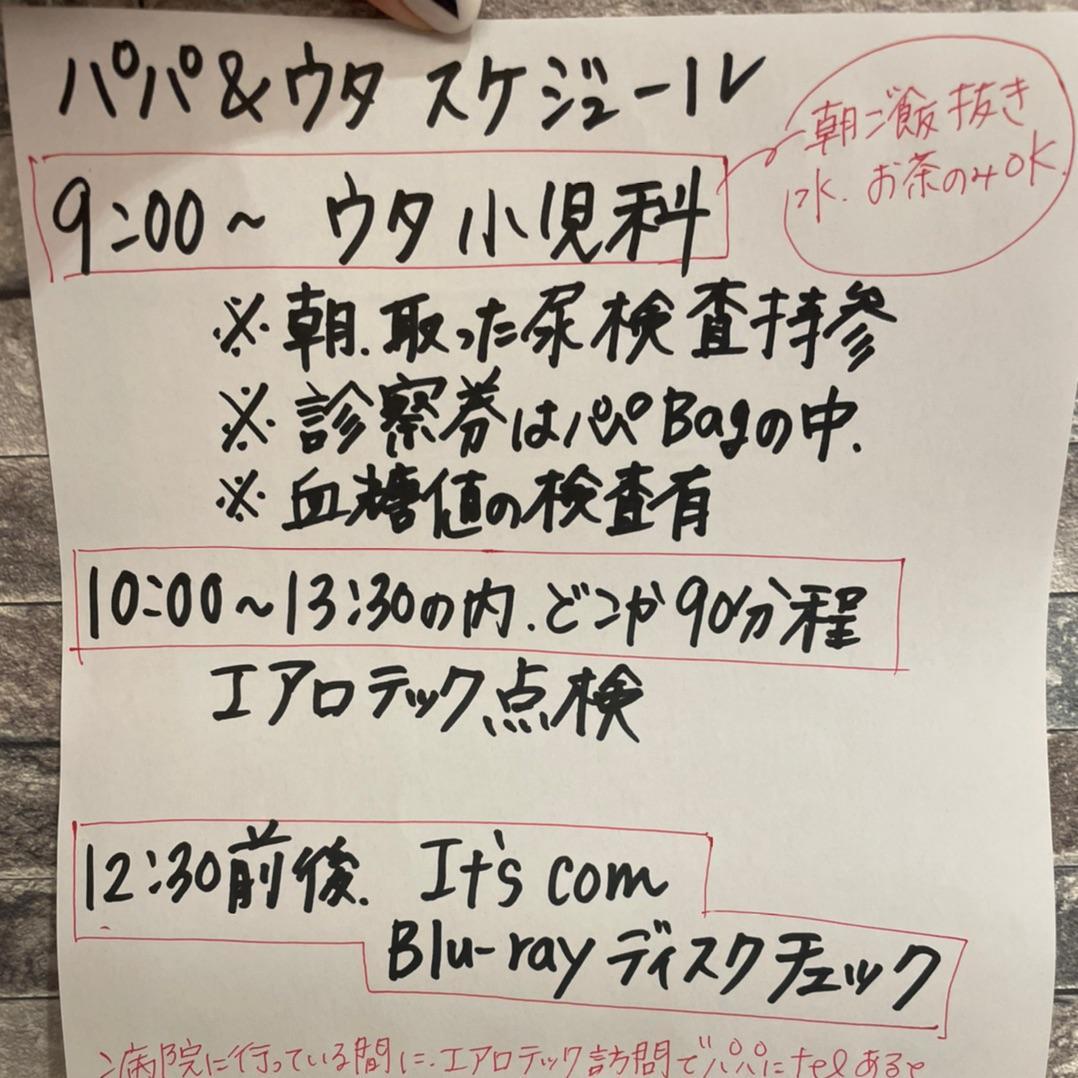 パパ&ウタ スケジュール
朝ご飯抜き
水.お茶のみOK.
9:00~ ウタ 小児科
※朝.取った尿検査持参
※診察券はパパBagの中.
※血糖値の検査有
10:00~13:30の内.どこか90分程
エアロテック点検
12:30前後. It's com
Blu-ray ディスクチェック
病院に行っている間に.エアロテック訪問でパパにtelあると